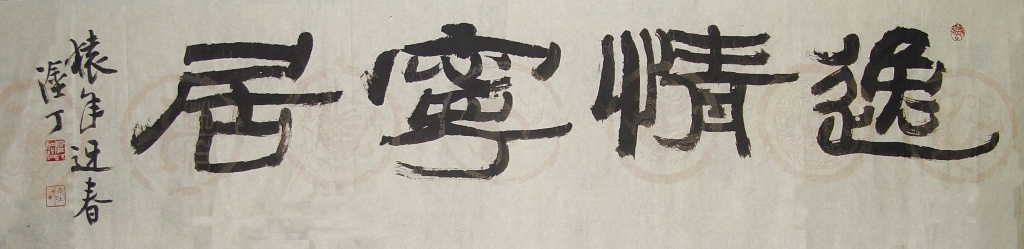 逸情寧居
猿年迎春